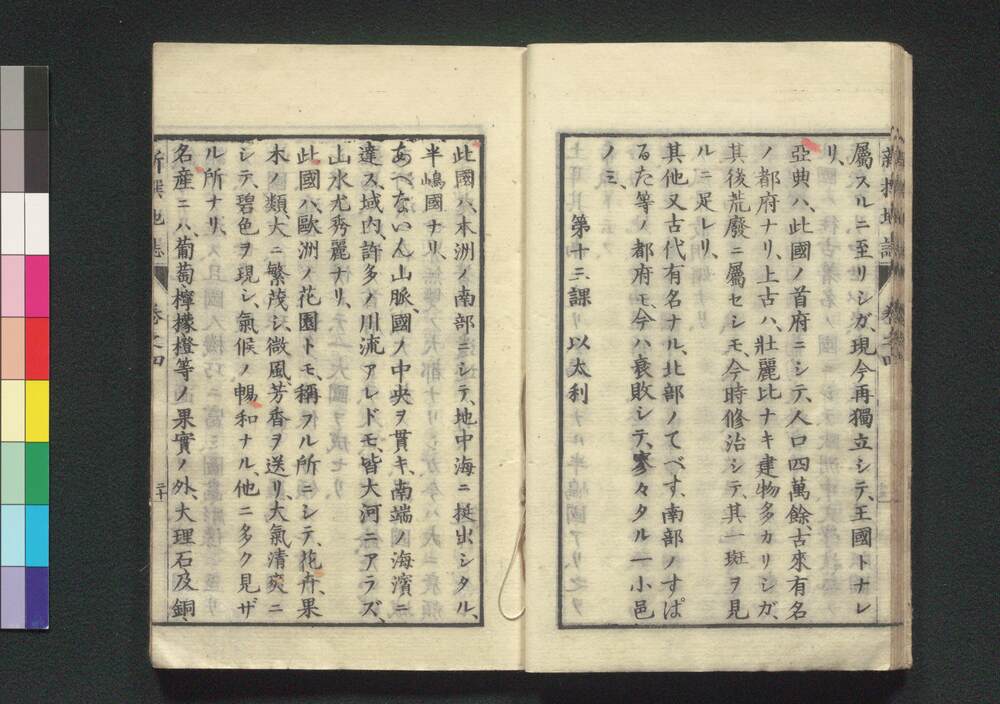 屬スルニ至リシガ、現今再獨立シテ、王國トナレ
リ、
亞典ハ、此國ノ首府ニシテ、人口四萬餘、古來有名
ノ都府ナリ、上古ハ、壯麗比ナキ建物多カリシガ、
其後荒廢ニ屬セシモ、今時修治シテ、其一斑ヲ見
ルニ足レリ、
其他又古代有名ナル、北部ノてべす、南部ノすぱ
るた等ノ都府モ、今ハ衰敗シテ、寥々タル一小邑
ノミ、
第十三課 以太利
此國ハ、本洲ノ南部ニシテ、地中海ニ挺出シタル、
半嶋國ナリ、
あぺないん山脈、國ノ中央ヲ貫キ、南端ノ海濱ニ
達ス、域内、許多ノ川流アレドモ、皆大河ニアラズ、
山水尤秀麗ナリ、
此國ハ、歐洲ノ花園トモ、稱フル所ニシテ、花卉、果
木ノ類、大ニ繁茂シ、微風芳香ヲ送リ、大氣清爽ニ
シテ、碧色ヲ現シ、氣候ノ暢和ナル、他ニ多ク見ザ
ル所ナリ、
名産ニハ、葡萄檸檬橙等ノ果實ノ外、大理石及銅、
新撰地誌 卷之四 二十